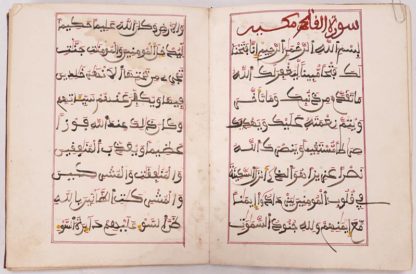 سورة الفتح مكية
بسم الله الرحمن الرحيم إنا فتحنا
لك فتحا مبينا ليغفر لك الله
ما تقدم من ذنبك وما تأخر
ويتم نعمته عليك ويهديك
صراطا مستقيما وينصرك الله
نصرا عزيزا هو الذي أنزل السكينة
في قلوب المومنين ليزدادوا إيمنا
مع إيمنهم ولله جنود السموت
والارض وكان الله عليما حكيما
ليدخل المومنين والمومنت جنت
تجري من تحتها الانهر خلدين
فيها ويكفر عنهم سيئاتهم
وكان ذلك عند الله فوزا
عظيما ويعذب المنفقين
والمنفقت والمشركين
والمشركت الظانين بالله
ظن السوء عليهم دائرة السوء